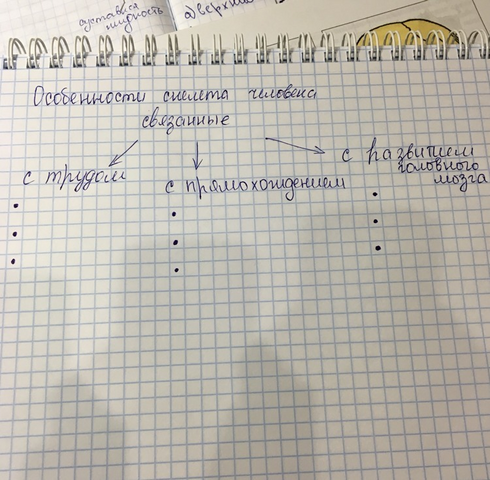 суставная
жидкость
Особенности скелета человека
связанные
с трудом
с прямохождением
с развитием
головного
мозга